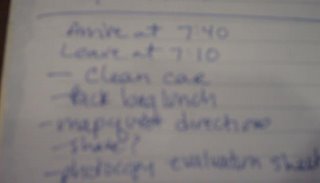 Arrive at 7:40
Leave at 7:10
- Clean car
- Pack bag lunch
- mapquest directions
- share?
- photocopy evaluation sheet